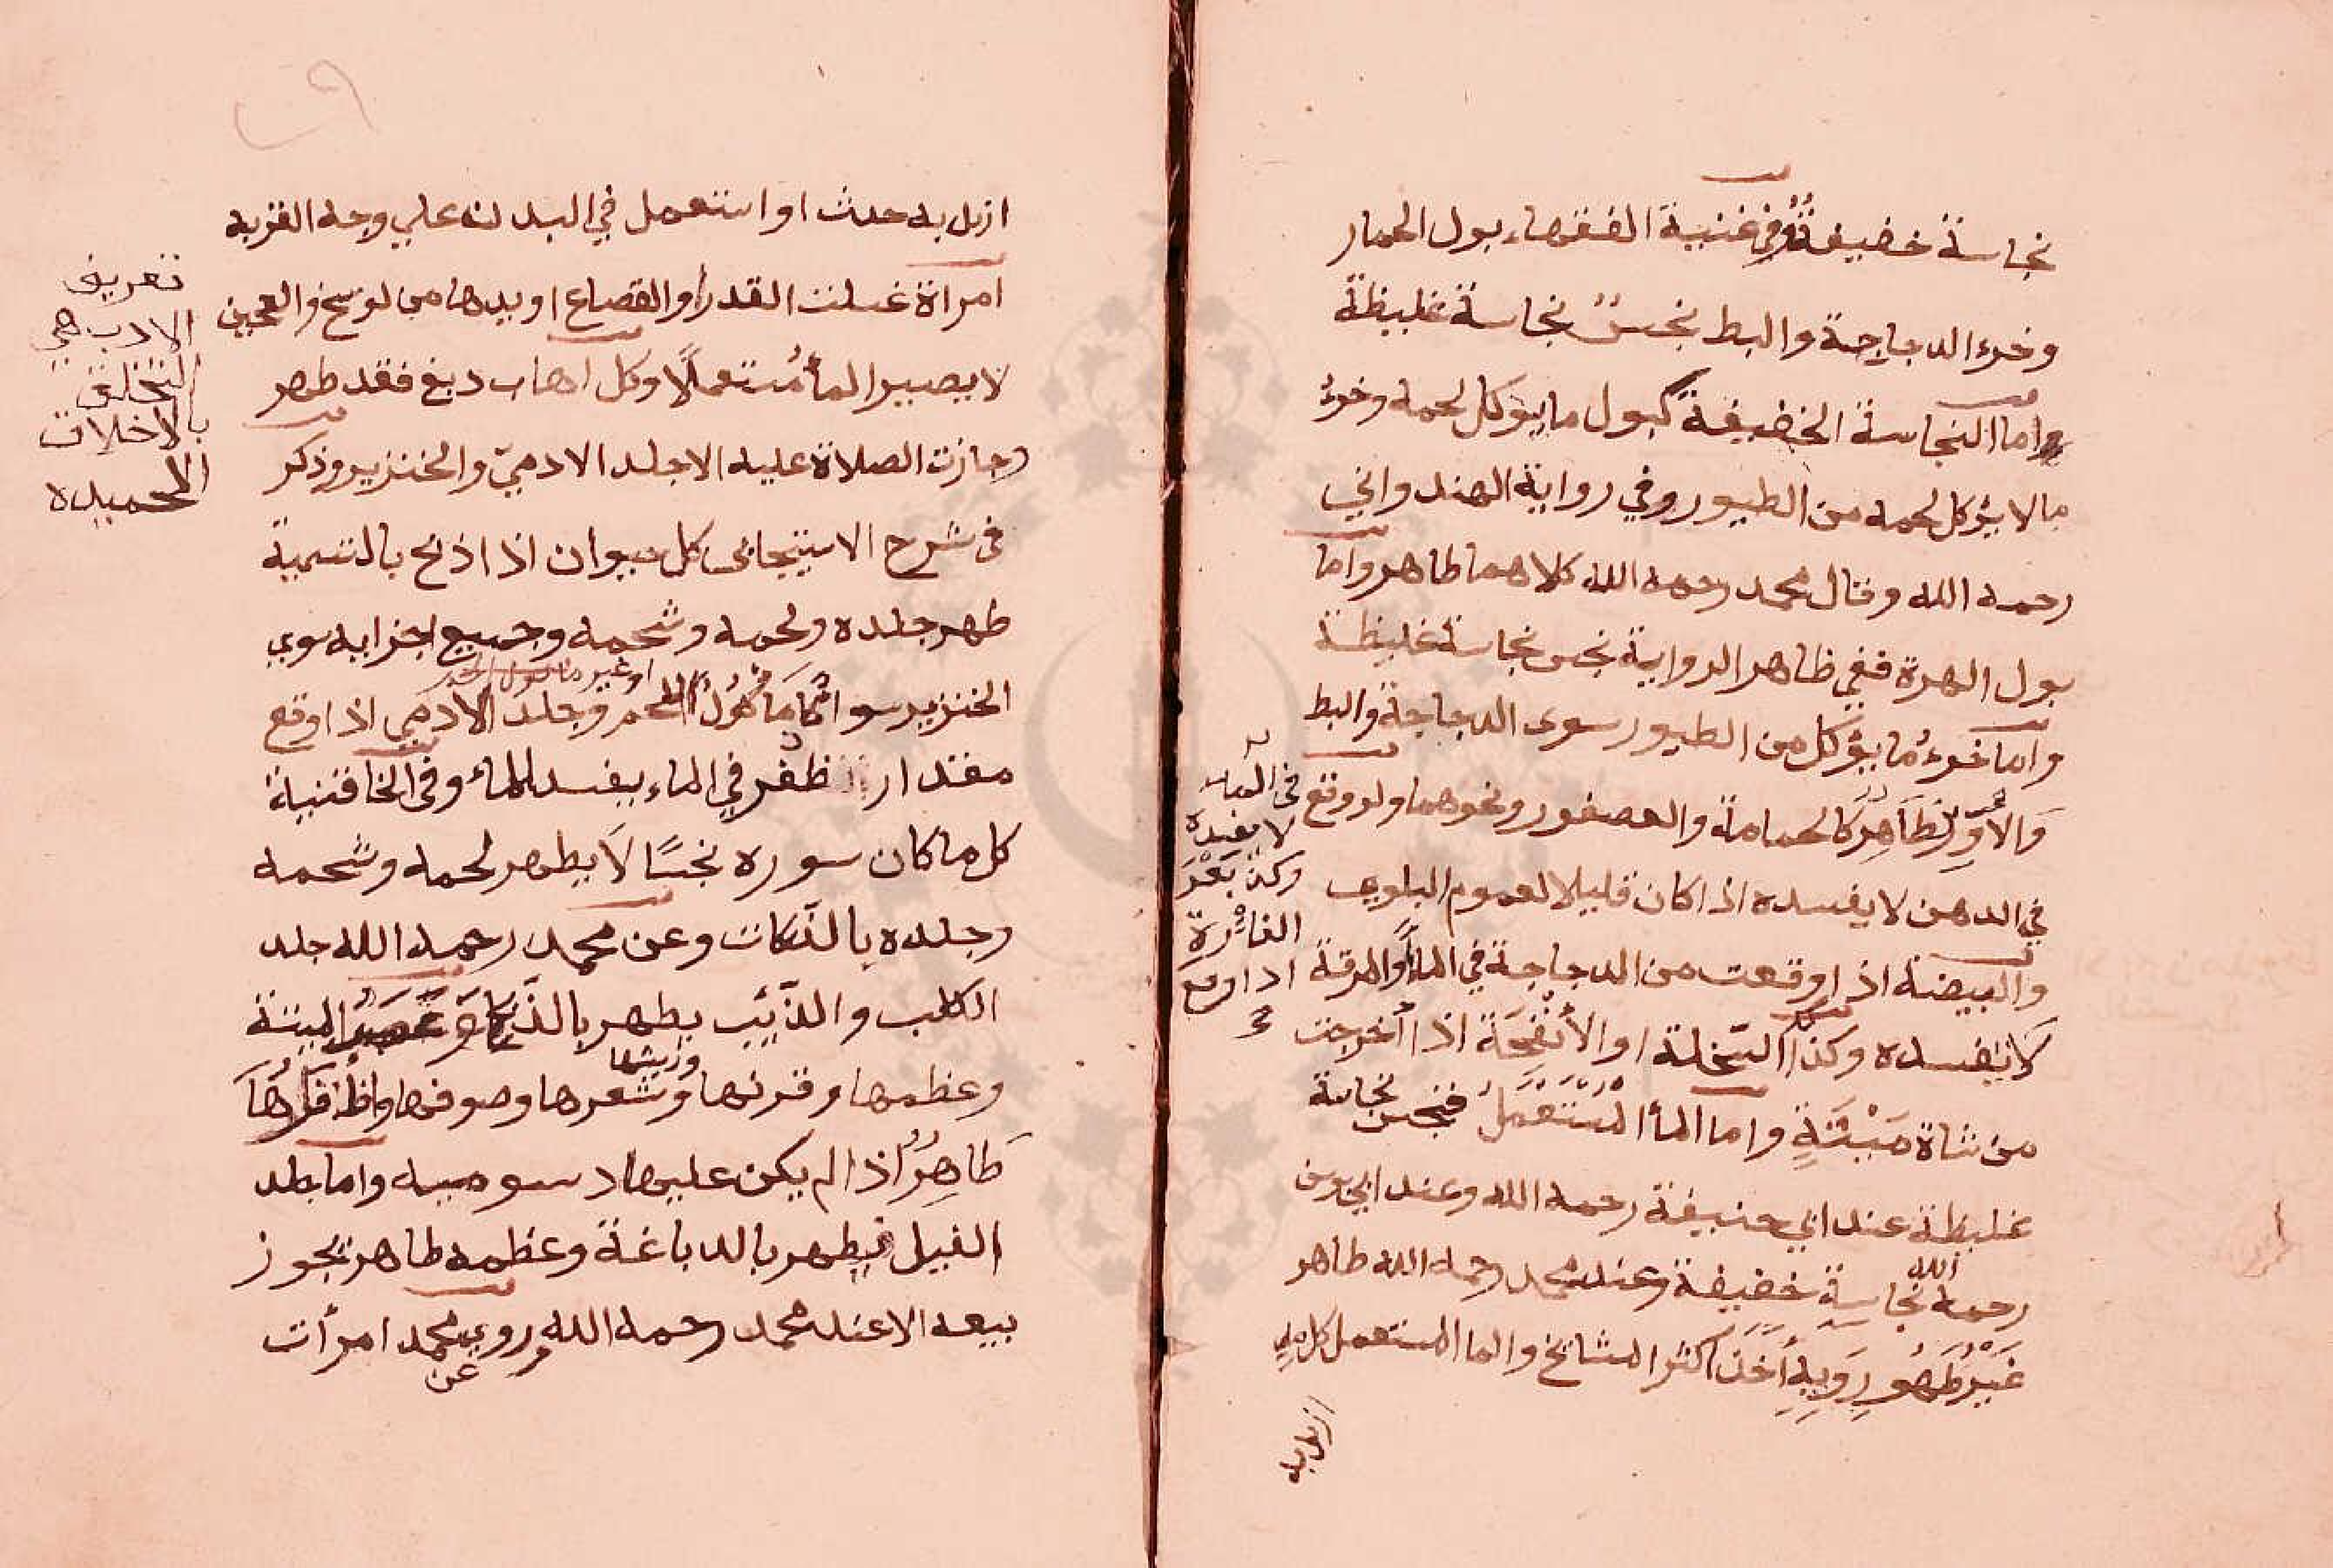 نجاسة خفيفة وفي غنية الفقهاء بول الحمار
وخرء الدجاجة والبط نجسٌ نجاسة غليظة
واما النجاسة الخفيفة كبول ما يؤكل لحمه وخرء
ما لا يؤكل لحمه من الطيور وفي رواية الهندواني
رحمه الله وقال محمد رحمه الله كلاهما طاهر واما
بول الهرة ففي ظاهر الرواية نجس نجاسة غليظة
واما خرءُ ما يؤكل من الطيور سوى الدجاجة والبط
والاوز طاهر كالحمامة والعصفور ونحوهما ولو وقع في الماء
لا يفسده
وكذا بعر
الفأرة
اذا وقع
في الدهن لا يفسده اذا كان قليلا لعموم البلوي
والبيضة اذا وقعت من الدجاجة في الماء والمرقة
لا يفسده وكذا السخلة او الأنفحة اذا أخرجت
من شاة ميتةٍ واما الماء المستعمل فنجس نجاسة
غليظة عند ابي حنيفة رحمه الله وعند ابي يوسف
رحمه الله نجاسة خفيفة وعند محمد رحمه الله طاهر
غير طهور وبه أخذ اكثر المشايخ والما المستعمل كل ماء
ازيل به
ازيل به حدث او استعمل في البدن علي وجه القربة
امراة غسلت القدر أو القصاع او يدها من الوسخ والعجين
لا يصير الماء مُستعملًا وكل اهاب دبغ فقد طهر
وجازت الصلاة عليه الا جلد الادميّ والخنزير وذكر
في شرح الاسبيجابى كل حيوان اذا ذبح بالتسمية
طهر جلده ولحمه وشحمه وجميع اجزايه سوي
او غير مأكول اللحم
الخنزير سوا كان مأكول اللحم وجلد الادمي اذا وقع
مقدار الظفر في الماء يفسد الماء وفي الخاقنية
كل ما كان سوره نجسًا لَا يطهر لحمه وشحمه
وجلده بالذكات وعن محمد رحمه الله جلد
الكلب والذّيب يطهر بالذّكاة الميتة
وريشها
وعظمها وقرنها وشعرها وصوفها واظفارها
طَاهِرٌ اذا لم يكن عليها دسومه واما جلد
الفيل فيطهر بالدباغة وعظمه طاهر يجوز
بيعه الا عند محمد رحمه الله وروي عن محمد امرأت
تعريف
الادب هي
التخلق
بالاخلاق
الحميده